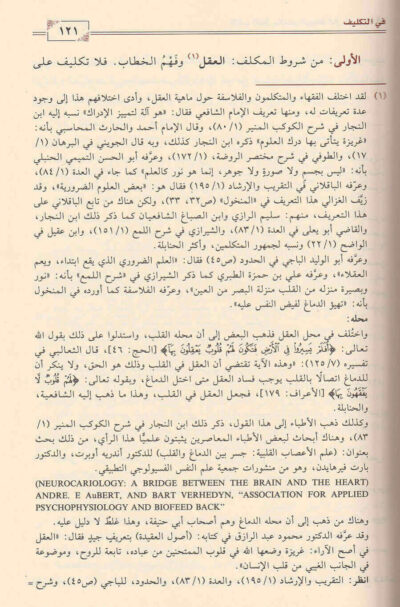 في التكليف
١٢١
الأولى: من شروط المكلف: العقل(١) وفَهْمُ الخطاب. فلا تكليف على
(١) لقد اختلف الفقهاء والمتكلمون والفلاسفة حول ماهية العقل، وأدى اختلافهم هذا إلى وجود
عدة تعريفات له، ومنها تعريف الإمام الشافعي فقال: «هو آلة لتمييز الإدراك» نسبه إليه ابن
النجار في شرح الكوكب المنير (٨٠/١)، وقال الإمام أحمد والحارث المحاسبي بأنه:
«غريزة يتأتى بها درك العلوم» ذكره ابن النجار كذلك، وبه قال الجويني في البرهان (١/
١٧)، والطوفي في شرح مختصر الروضة، (١٧٢/١)، وعرَّفه أبو الحسن التميمي الحنبلي
بأنه: «ليس بجسم ولا صورةٍ ولا جوهر، إنما هو نور كالعلم» كما جاء في العدة (٨٤/١)،
وعرَّفه الباقلاني في التقريب والإرشاد (١٩٥/١) فقال هو: «بعض العلوم الضرورية»، وقد
زيَّف الغزالي هذا التعريف في «المنخول» (ص٣٢، ٣٣)، ولكن هناك من تابع الباقلاني على
هذا التعريف، منهم: سليم الرازي وابن الصباغ الشافعيان كما ذكر ذلك ابن النجار،
والقاضي أبو يعلى في العدة (٨٣/١)، والشيرازي في شرح اللمع (١٥١/١)، وابن عقيل في
الواضح (٢٢/١) ونسبه لجمهور المتكلمين، وأكثر الحنابلة.
وعرَّفه أبو الوليد الباجي في الحدود (ص٤٥) فقال: «العلم الضروري الذي يقع ابتداء، ويعم
العقلاء»، وعرَّفه علي بن حمزة الطبري كما ذكر الشيرازي في «شرح اللمع» بأنه: «نور
وبصيرة منزله من القلب منزلة البصر من العين»، وعرَّفه الفلاسفة كما أورده في المنخول
بأنه: «تهيؤ الدماغ لفيض النفس عليه».
محله:
واختُلف في محل العقل فذهب البعض إلى أن محله القلب، واستدلوا على ذلك بقول الله
تعالى: ﴿أَفَلَمْ يَسِيرُوا۟ فِى ٱلْأَرْضِ فَتَكُونَ لَهُمْ قُلُوبٌ يَعْقِلُونَ بِهَآ﴾ [الحج: ٤٦]، قال الثعالبي في
تفسيره (١٢٥/٧): «وهذه الآية تقتضي أن العقل في القلب وذلك هو الحق، ولا ينكر أن
للدماغ اتصالًا بالقلب يوجب فساد العقل متى اختل الدماغ، وبقوله تعالى: ﴿لَهُمْ قُلُوبٌ لَّا
يَفْقَهُونَ بِهَا﴾ [الأعراف: ١٧٩]، فجعل العقل في القلب، وهذا ما ذهب إليه الشافعية،
والحنابلة.
وكذلك ذهب الأطباء إلى هذا القول، ذكر ذلك ابن النجار في شرح الكوكب المنير (١/
٨٣)، وهناك أبحاث لبعض الأطباء المعاصرين يثبتون علميًّا هذا الرأي، من ذلك بحث
بعنوان: (علم الأعصاب القلبية: جسر بين الدماغ والقلب) للدكتور أندريه أوبرت، والدكتور
بارت فيرهايدن، وهو من منشورات جمعية علم النفس الفسيولوجي التطبيقي.
(NEUROCARIOLOGY: A BRIDGE BETWEEN THE BRAIN AND THE HEART)
ANDRE. E AuBERT, AND BART VERHEDYN, "ASSOCIATION FOR APPLIED
PSYCHOPHYSIOLOGY AND BIOFEED BACK"
وهناك من ذهب إلى أن محله الدماغ وهم أصحاب أبي حنيفة، وهذا غلطٌ لا دليل عليه.
وقد عرَّفه الدكتور محمود عبد الرازق في كتابه: (أصول العقيدة) بتعريفٍ جيدٍ فقال: «العقل
في أصح الآراء: غريزة وضعها الله في قلوب الممتحنين من عباده، تابعة للروح، وموضوعة
في الجانب الغيبي من قلب الإنسان».
انظر: التقريب والإرشاد (١٩٥/١)، والعدة (٨٣/١)، والحدود، للباجي (ص٤٥)، وشرح =